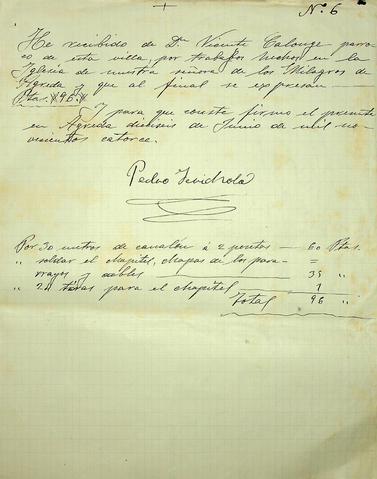 Nº 6
He recibido de Dn Vicente Calonge parro-
co de esta villa, por trabajos hechos en la
Iglesia de nuestra señora de los Milagros de
Agreda y que al final se expresan
Ptas. #96#
Y para que conste firmo el presente
en Agreda dieciseis de Junio de mil no-
vecientos catorce.
Pedro
Por 30 metros de canalón á 2 pesetas — 60 Ptas.
" soldar el chapitel, chapas de los para- =
rrayos y dobles — 35 "
" 24 para el chapitel — 1
Total 96 "